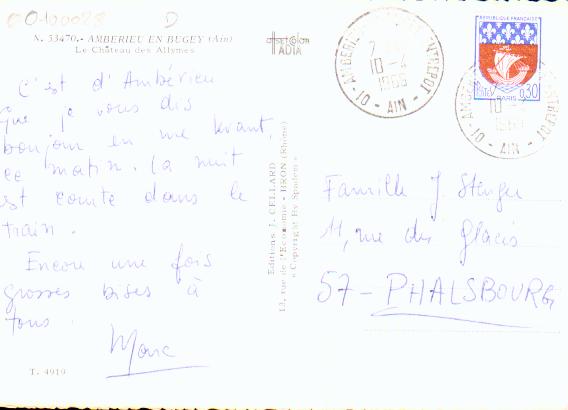 00100028 D
N. 53470. - AMBERIEU EN BUGEY (Ain)
Le Château des Allymes
C'est d'Ambérieu
que je vous dis
bonjour en me levant,
ce matin. La nuit
est courte dans le
train.
Encore une fois
grosses bises à
tous.
Marc
T. 4919
Editions J. CELLARD
13, rue de l'Economie - BRON (Rhône)
« Copyright By Spadem »
REPUBLIQUE FRANÇAISE
POSTES
PARIS 0,30
10-4
1966
01 - AMBERIEU ENTREPOT
- AIN -
Famille J Stenger
11, rue des Glacis
57 - PHALSBOURG